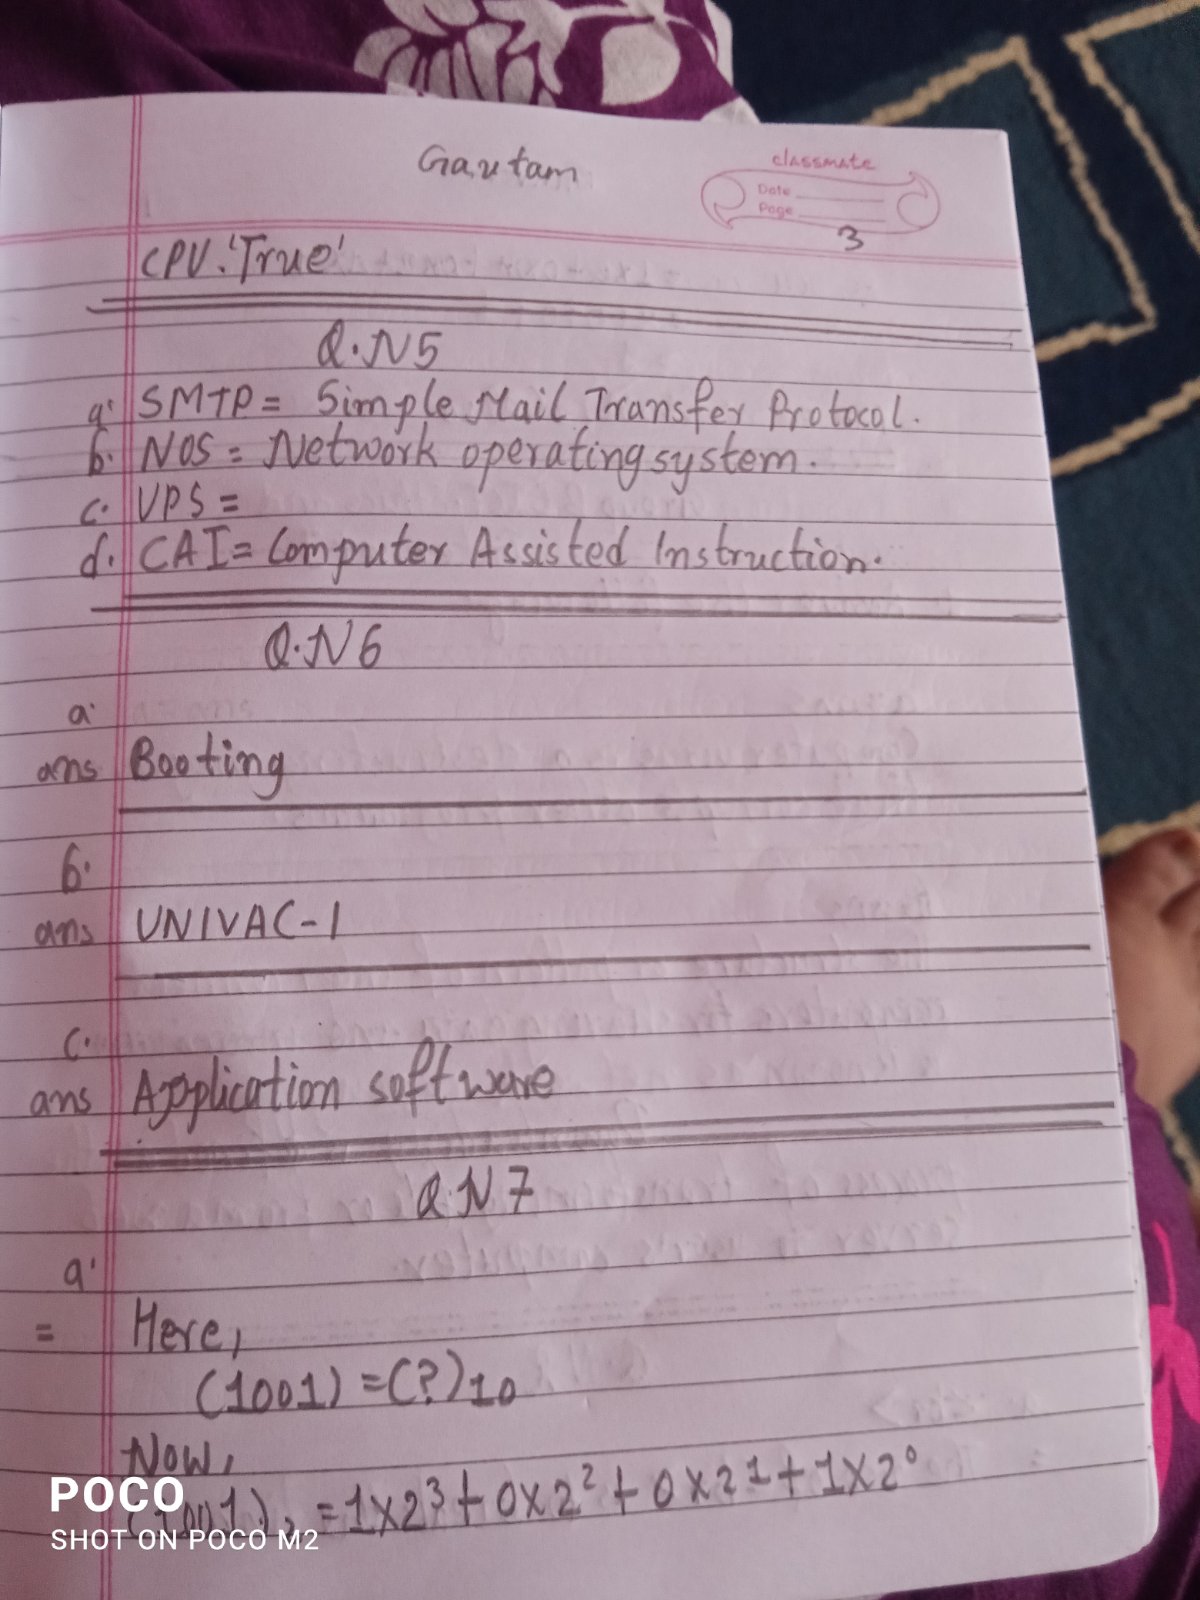 Gautam
classmate
Date
Page
3
CPU. 'True'
Q.N5
a. SMTP = Simple Mail Transfer Protocol.
b. NOS = Network operating system.
c. VPS =
d. CAI = Computer Assisted Instruction.
Q.N6
a.
ans Booting
b.
ans UNIVAC-1
c.
ans Application software
Q.N7
a.
= Here,
(1001) = (?)10
Now,
(1001)2 = 1×2³ + 0×2² + 0×2¹ + 1×2⁰
POCO
SHOT ON POCO M2